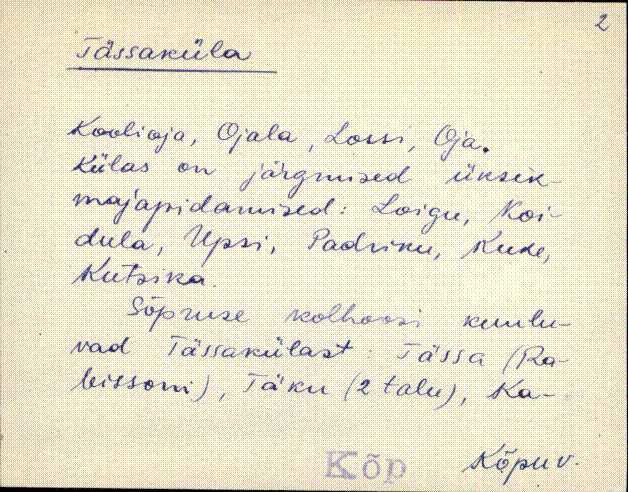 2
Tässaküla
Koolioja, Ojala, Lossi, Oja.
Külas on järgmised üksik-
majapidamised: Loigu, Koi-
dula, Upsi, Padriku, Kuke,
Kutsika.
Sõpruse kolhoosi kuulu-
vad Tässakülast: Tässa (Ra-
bissoni), Täku (2 talu), Ka-
Kõp Kõpu v.